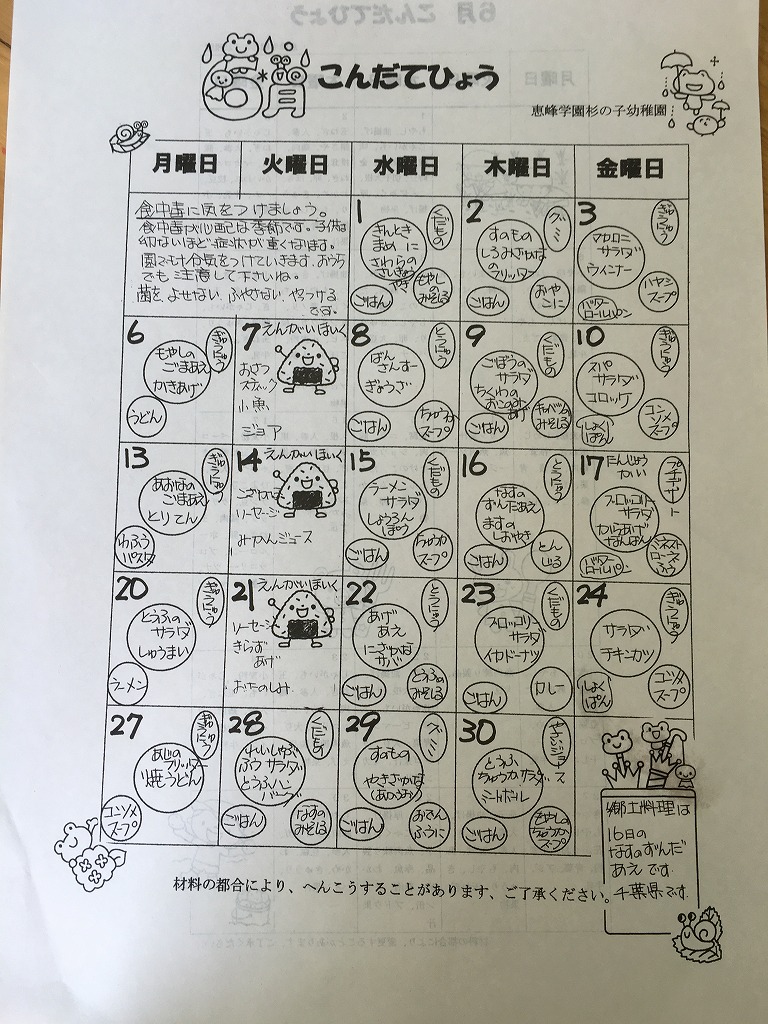 6月 こんだてひょう
恵峰学園杉の子幼稚園
月曜日 火曜日 水曜日 木曜日 金曜日
食中毒に気をつけましょう。
食中毒が心配な季節です。子供は
幼ないほど症状が重くなります。
園でも十分気をつけていきます。おうち
でも注意して下さいね。
菌を よせない ふやさない やっつける
です。
1
くだもの
きんとき
まめに
さわらの
さいきょう
やき
ごはん
もやしの
みそしる
2
グミ
すのもの
しろみざかな
のフリッター
ごはん
おや
こに
3
ぎゅうにゅう
マカロニ
サラダ
ウィンナー
バター
ロールパン
ハヤシ
スープ
6
ぎゅうにゅう
もやしの
ごまあえ
かきあげ
うどん
7
えんがいほいく
おさつ
スティック
小魚
ジョア
8
とうにゅう
ばん
さんすー
ぎょうざ
ごはん
ちゅうか
スープ
9
くだもの
ごぼうの
サラダ
ちくわの
おこのみ
あげ
ごはん
キャベツの
みそしる
10
ぎゅうにゅう
スパ
サラダ
コロッケ
しょく
ぱん
コンソメ
スープ
13
ぎゅうにゅう
あおなの
ごまあえ
とりてん
わふう
パスタ
14
えんがいほいく
こざかな
ソーセージ
みかんジュース
15
くだもの
ラーメン
サラダ
しょうろん
ぽう
ごはん
ちゅうか
スープ
16
とうにゅう
なすの
ずんだあえ
ますの
しおやき
ごはん
とん
じる
17
たんじょう
かい
プチデザート
ブロッコリー
サラダ
からあげ
なんばん
バター
ロールパン
ミネスト
ローネ
ふう
20
ぎゅうにゅう
とうふの
サラダ
しゅうまい
ラーメン
21
えんがいほいく
ソーセージ
きらず
あげ
おたのしみ
22
とうにゅう
あげ
あえ
にざかな
サバ
ごはん
とうふの
みそしる
23
くだもの
ブロッコリー
サラダ
イカドーナツ
ごはん
カレー
24
ぎゅうにゅう
サラダ
チキンカツ
しょく
ぱん
コンソメ
スープ
27
ぎゅうにゅう
あじの
フリッター
焼うどん
コンソメ
スープ
28
くだもの
れいしゃぶ
ふうサラダ
とうふハン
バーグ
ごはん
なすの
みそしる
29
グミ
すのもの
やきざかな
ごはん
おでん
ふうに
30
とうふ
ちゅうかサラダ
ミートボール
ごはん
もやしの
ちゅうか
スープ
郷土料理は
16日の
なすのずんだ
あえです。
千葉県です。
材料の都合により、へんこうすることがあります、ご了承ください。